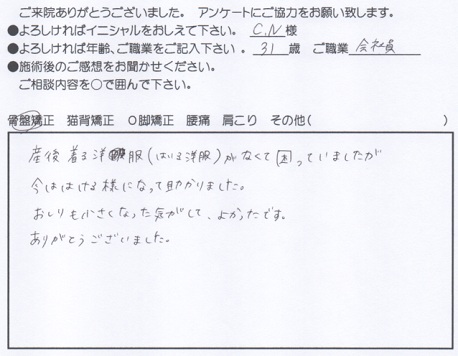 ご来院ありがとうございました。 アンケートにご協力をお願い致します。
●よろしければイニシャルをおしえて下さい。 C.N 様
●よろしければ年齢、ご職業をご記入下さい 。 31 歳 ご職業 会社員
●施術後のご感想をお聞かせください。
ご相談内容を○で囲んで下さい。
骨盤矯正 猫背矯正 O脚矯正 腰痛 肩こり その他( )
産後 着る洋服(はいる洋服)がなくて困っていましたが
今ははける様になって助かりました。
おしりも小さくなった気がして、よかったです。
ありがとうございました。